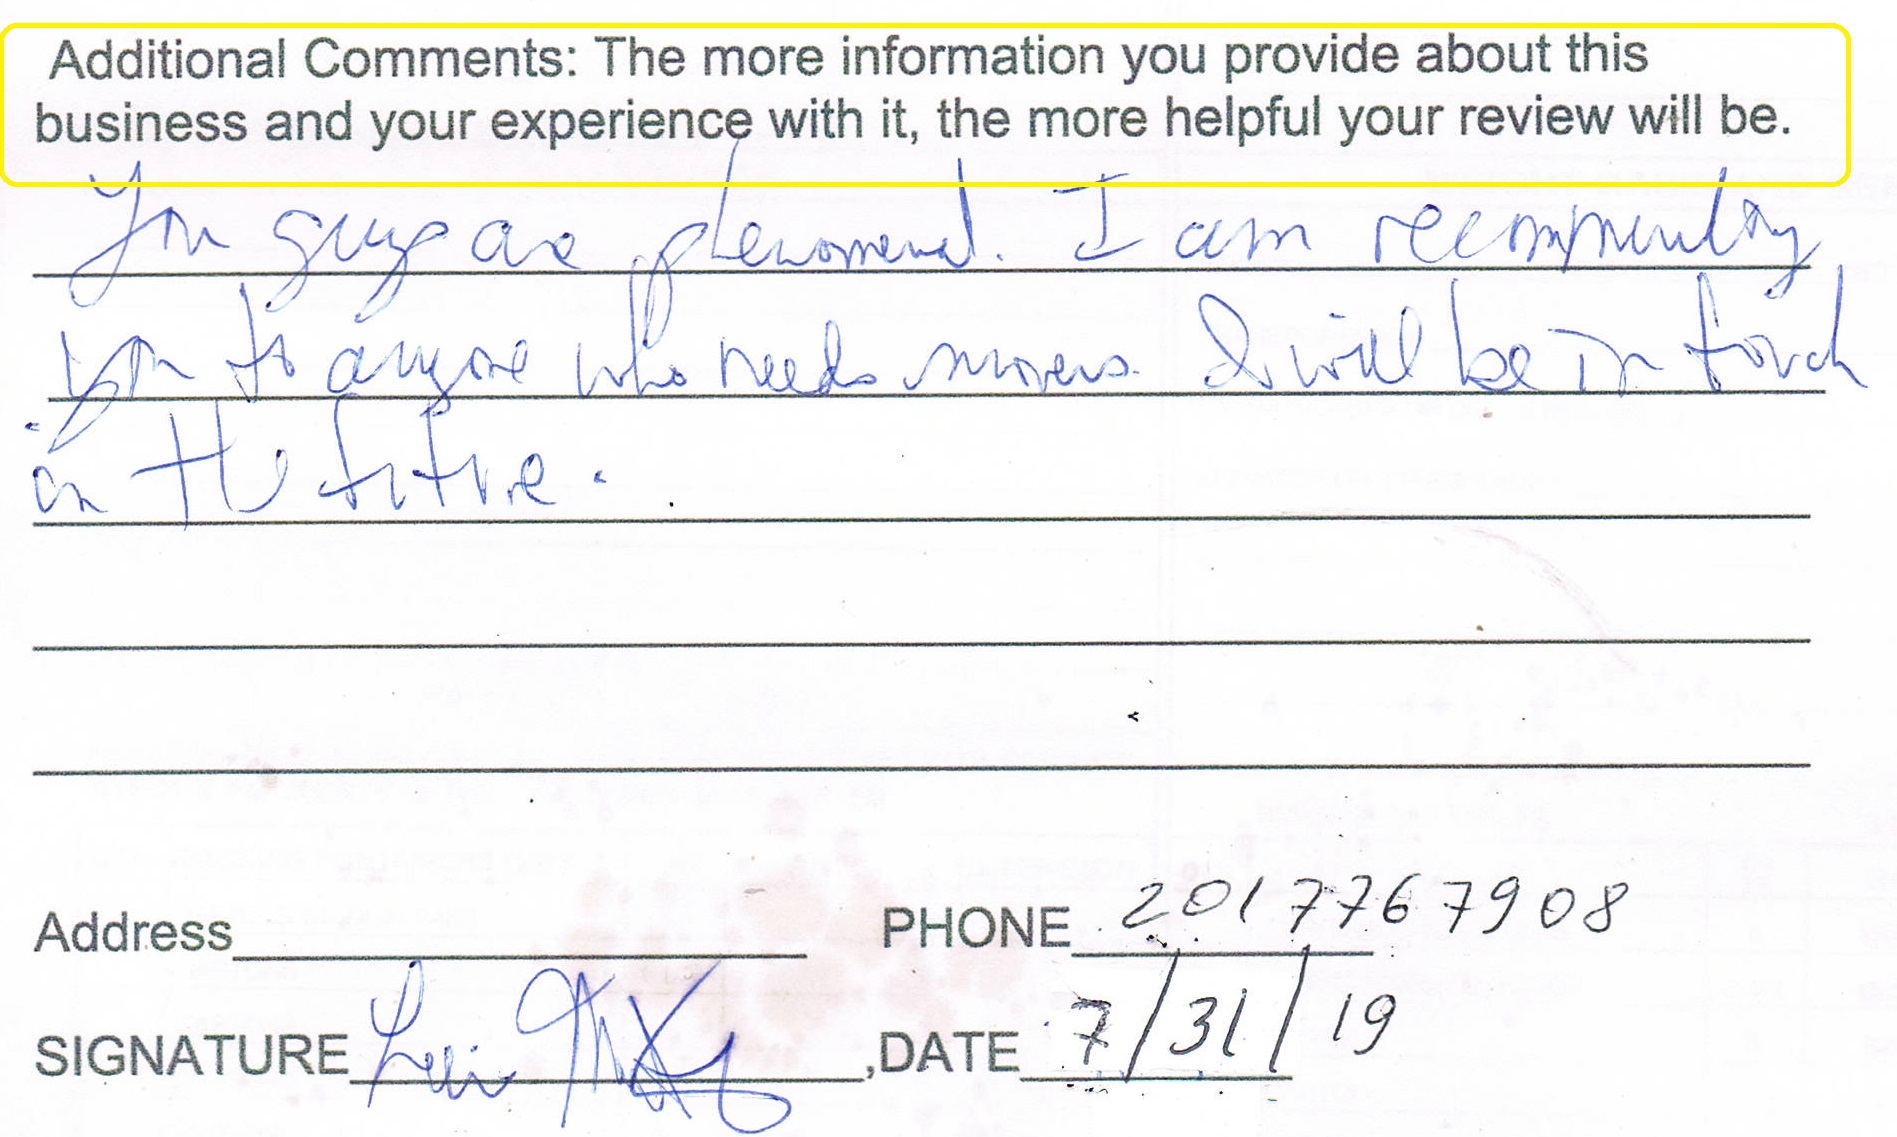 Additional Comments: The more information you provide about this
business and your experience with it, the more helpful your review will be.
You guys are phenomenal. I am recommending
you to anyone who needs movers. I will be in touch
in the future.
Address PHONE 2017767908
SIGNATURE ,DATE 7/31/19